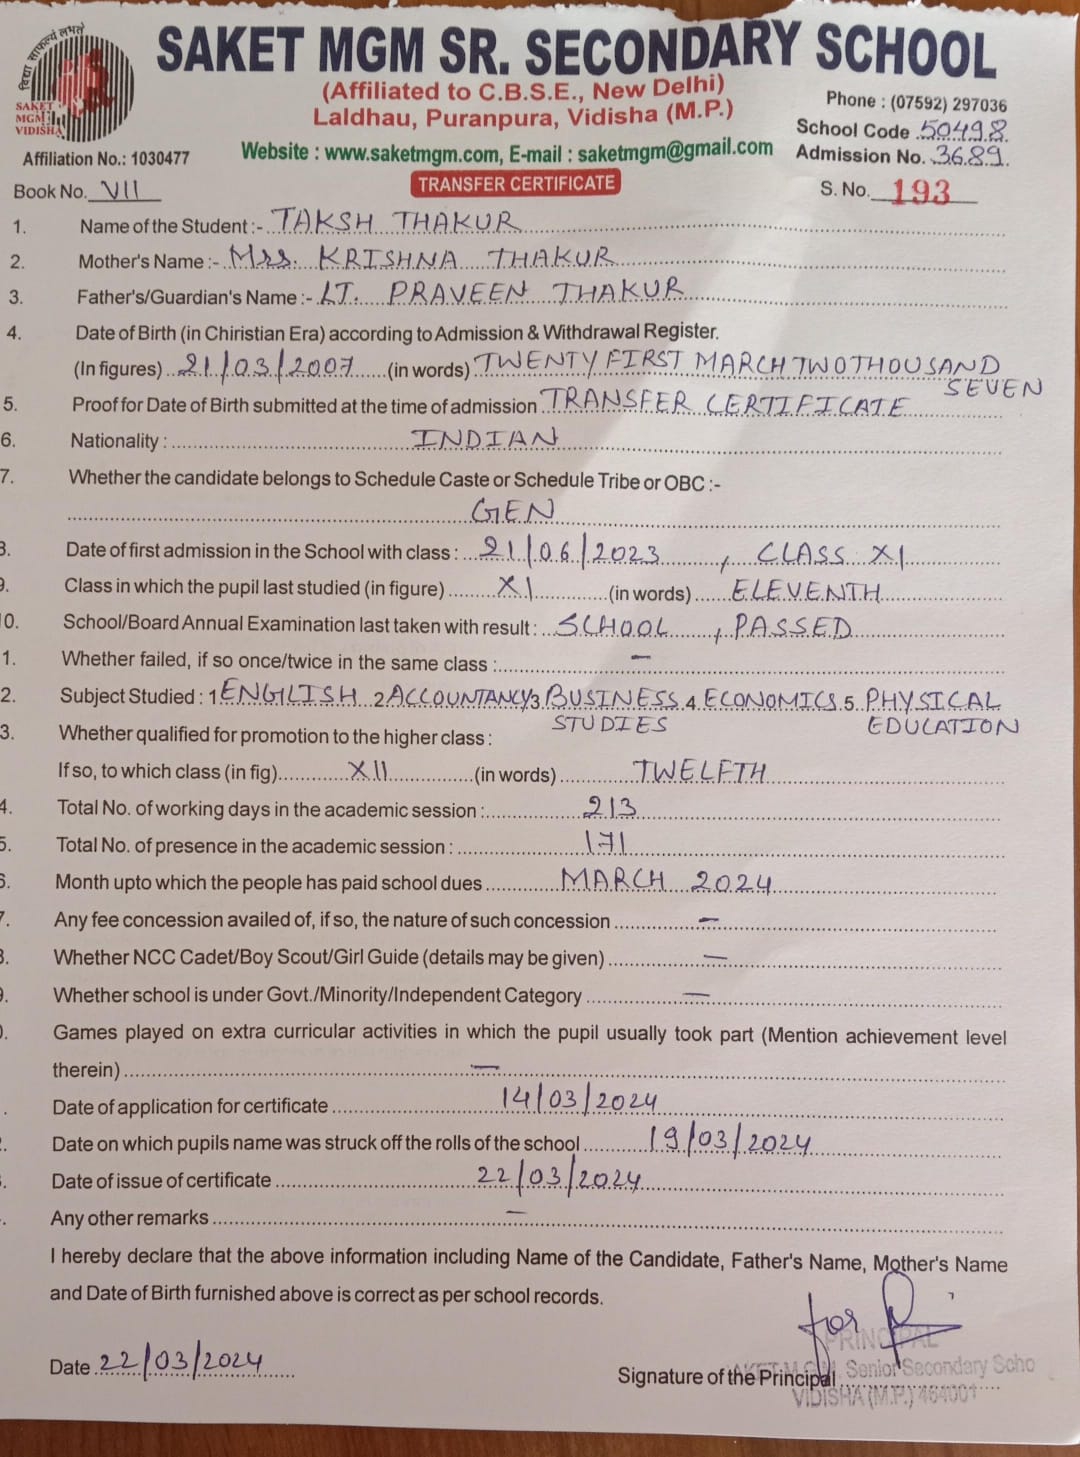 विद्या साफल्यं लभते
SAKET
MGM
VIDISHA
SAKET MGM SR. SECONDARY SCHOOL
(Affiliated to C.B.S.E., New Delhi)
Laldhau, Puranpura, Vidisha (M.P.)
Phone : (07592) 297036
School Code 50498
Affiliation No.: 1030477 Website : www.saketmgm.com, E-mail : saketmgm@gmail.com Admission No. 3689
Book No. VII TRANSFER CERTIFICATE S. No. 193
1. Name of the Student :- TAKSH THAKUR
2. Mother's Name :- Mrs. KRISHNA THAKUR
3. Father's/Guardian's Name :- LT. PRAVEEN THAKUR
4. Date of Birth (in Chiristian Era) according to Admission & Withdrawal Register.
(In figures) 21/03/2007 (in words) TWENTY FIRST MARCH TWO THOUSAND
SEVEN
5. Proof for Date of Birth submitted at the time of admission TRANSFER CERTIFICATE
6. Nationality : INDIAN
7. Whether the candidate belongs to Schedule Caste or Schedule Tribe or OBC :-
GEN
8. Date of first admission in the School with class : 21/06/2023, CLASS XI
9. Class in which the pupil last studied (in figure) XI (in words) ELEVENTH
0. School/Board Annual Examination last taken with result : SCHOOL, PASSED
1. Whether failed, if so once/twice in the same class : –
2. Subject Studied : 1 ENGLISH 2 ACCOUNTANCY 3 BUSINESS 4. ECONOMICS 5. PHYSICAL
STUDIES EDUCATION
3. Whether qualified for promotion to the higher class :
If so, to which class (in fig) XII (in words) TWELFTH
4. Total No. of working days in the academic session : 213
5. Total No. of presence in the academic session : 171
6. Month upto which the people has paid school dues MARCH 2024
7. Any fee concession availed of, if so, the nature of such concession –
8. Whether NCC Cadet/Boy Scout/Girl Guide (details may be given) –
9. Whether school is under Govt./Minority/Independent Category –
0. Games played on extra curricular activities in which the pupil usually took part (Mention achievement level
therein) –
. Date of application for certificate 14/03/2024
. Date on which pupils name was struck off the rolls of the school 19/03/2024
. Date of issue of certificate 22/03/2024
. Any other remarks –
I hereby declare that the above information including Name of the Candidate, Father's Name, Mother's Name
and Date of Birth furnished above is correct as per school records.
for
PRINCIPAL
Date 22/03/2024
Signature of the Principal
SAKET M.G.M. Senior Secondary Scho
VIDISHA (M.P.) 464001